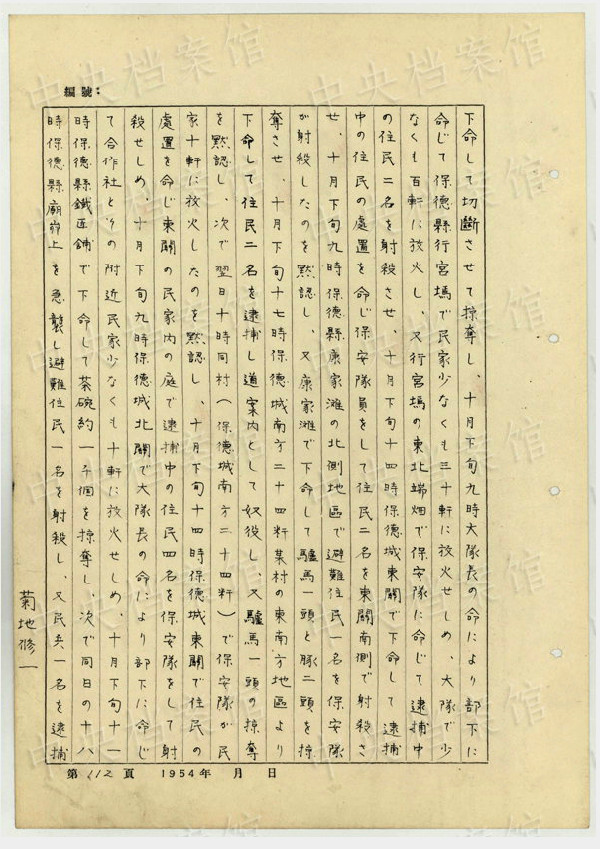 編號:
下命して切斷させて掠奪し、十月下旬九時大隊長の命により部下に
命じて保德縣行宮塢で民家少なくも三十軒に放火せしめ、大隊で少
なくも百軒に放火し、又行宮塢の東北端畑で保安隊に命じて逮捕中
の住民二名を射殺させ、十月下旬十四時保德城東關で下命して逮捕
中の住民の處置を命じ保安隊員をして住民二名を東關南側で射殺さ
せ、十月下旬九時保德縣康家灘の北側地區で避難住民一名を保安隊
が射殺したのを黙認し、又康家灘で下命して驢馬一頭と豚二頭を掠
奪させ、十月下旬十七時保德城南方二十四粁某村の東南方地區より
下命して住民二名を逮捕し道案内として奴役し、又驢馬一頭の掠奪
を黙認し、次で翌日十時同村(保德城南方二十四粁)で保安隊が民
家十軒に放火したのを黙認し、十月下旬十四時保德城東關で住民の
處置を命じ東關の民家内の庭で逮捕中の住民四名を保安隊をして射
殺せしめ、十月下旬九時保德城北關で大隊長の命により部下に命じ
て合作社とその附近民家少なくも十軒に放火せしめ、十月下旬十一
時保德縣鐵匠舖で下命して茶碗約一千個を掠奪し、次で同日の十八
時保德縣廟峁上を急襲し避難住民一名を射殺し、又民兵一名を逮捕
菊地修一
第112頁 1954年 月 日
中央档案馆